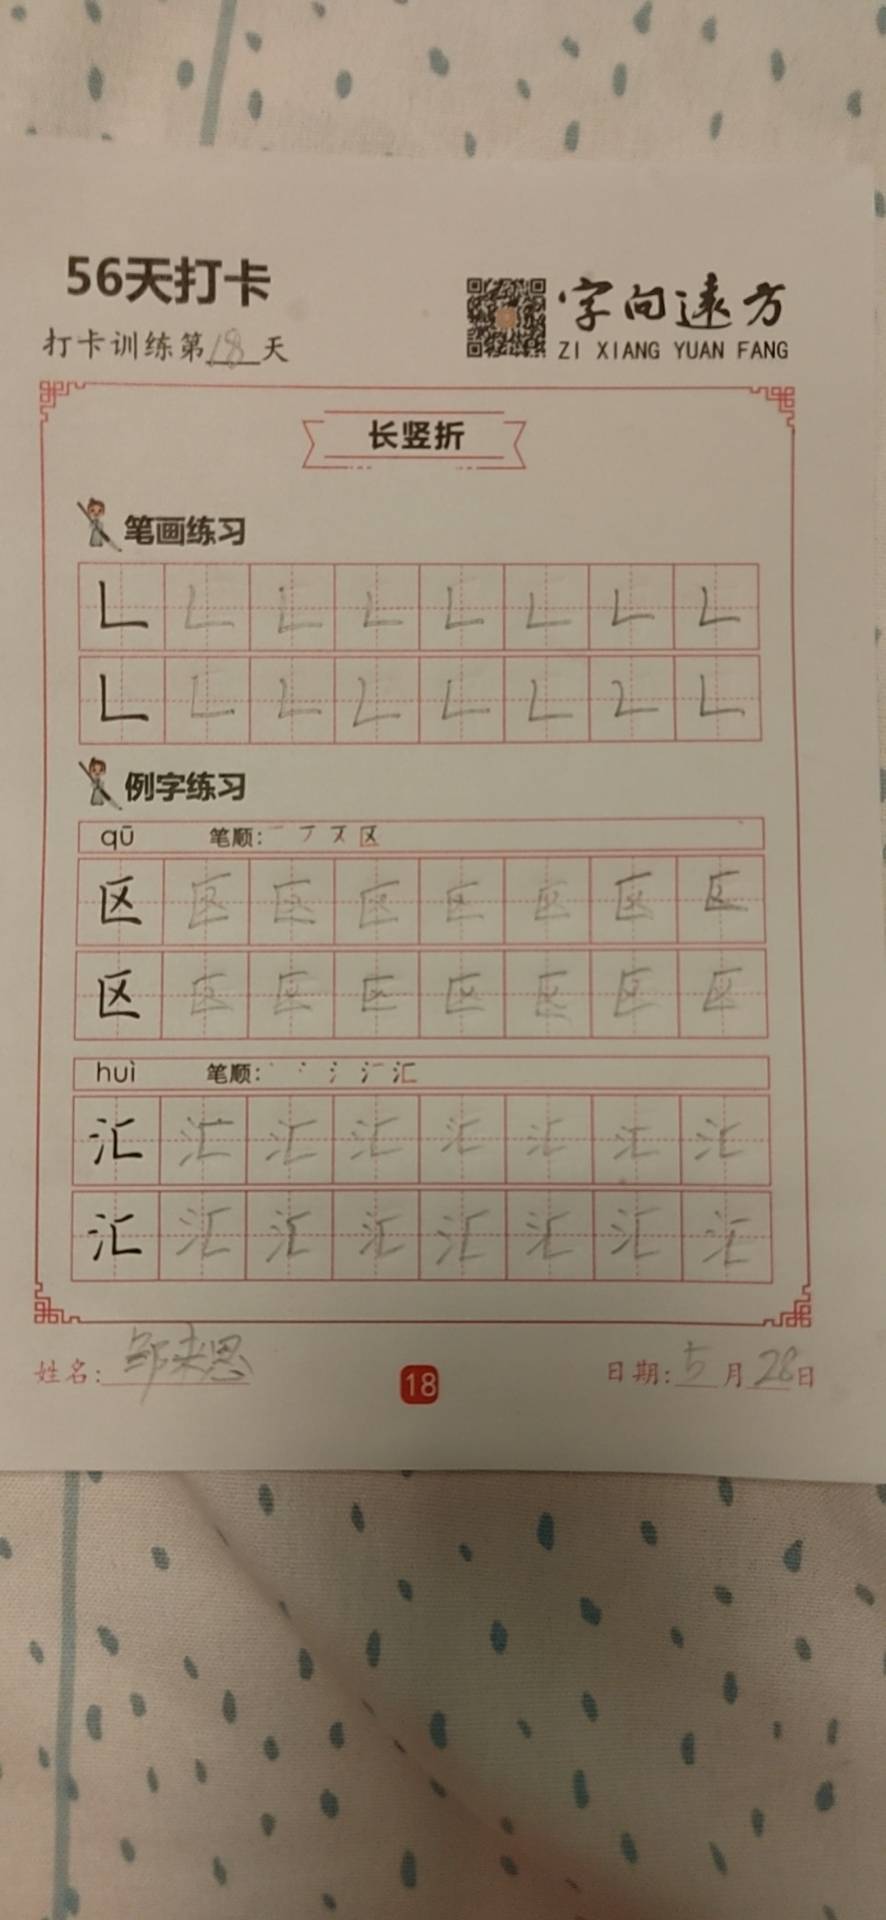 56天打卡
字向远方
打卡训练第18天
ZI XIANG YUAN FANG
长竖折
笔画练习
𠃊 𠃊 𠃊 𠃊 𠃊 𠃊 𠃊 𠃊
𠃊 𠃊 𠃊 𠃊 𠃊 𠃊 𠃊 𠃊
例字练习
qū 笔顺:
区 区 区 区 区 区 区 区
区 区 区 区 区 区 区 区
huì 笔顺:
汇 汇 汇 汇 汇 汇 汇 汇
汇 汇 汇 汇 汇 汇 汇 汇
姓名:邹来恩
18
日期:5月28日